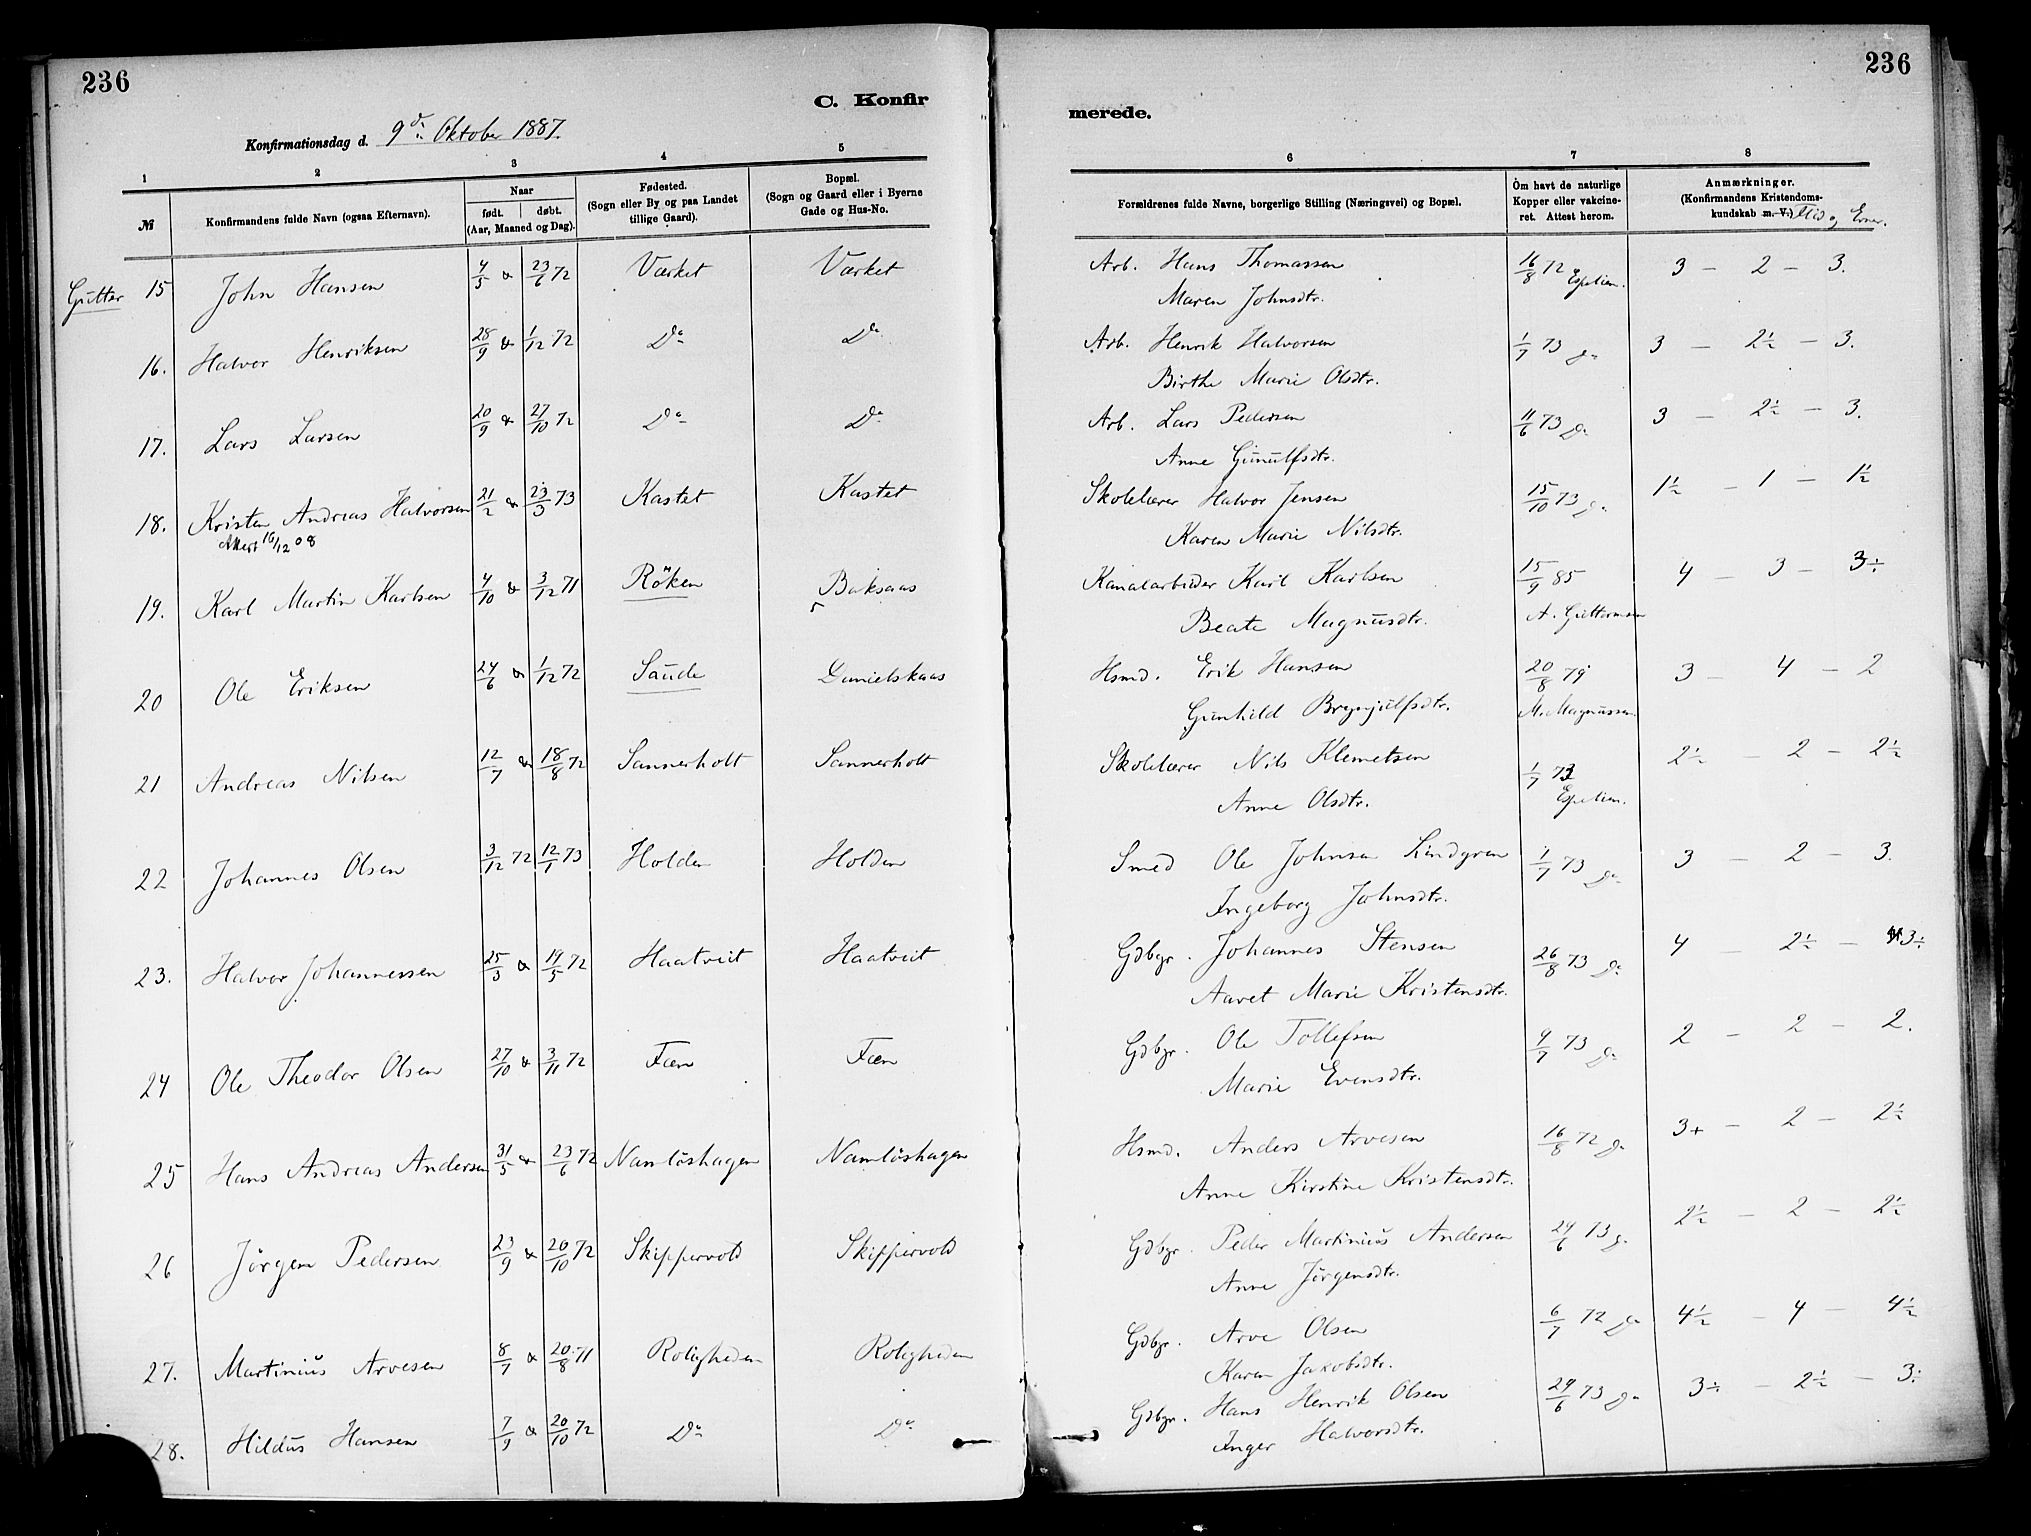 236
236
C. Konfir
merede.
Konfirmationsdag d. 9de Oktober 1887.
1 2 3 4 5 6 7 8
№
Konfirmandens fulde Navn (ogsaa Efternavn).
Naar
født. døbt.
(Aar, Maaned og Dag).
Fødested.
(Sogn eller By og paa Landet
tillige Gaard).
Bopæl.
(Sogn og Gaard eller i Byerne
Gade og Hus-No.
Forældrenes fulde Navne, borgerlige Stilling (Næringsvei) og Bopæl.
Om havt de naturlige
Kopper eller vakcine-
ret. Attest herom.
Anmærkninger.
(Konfirmandens Kristendoms-
kundskab m. V.) Flid og Evner.
Gutter 15 John Hansen 4/5 & 23/6 72 Værket Værket Arb. Hans Thomassen 16/8 72 Espelien. 3 – 2 – 3.
Maren Johnsdtr.
16. Halvor Henriksen 28/9 & 1/12 72 Do Do Arb. Henrik Halvorsen 1/7 73 do 3 – 2½ – 3.
Birthe Marie Olsdtr.
17. Lars Larsen 20/9 & 27/10 72 Do Do Arb. Lars Pedersen 11/6 73 Do 3 – 2½ – 3.
Anne Gunulfsdtr.
18. Kristen Andreas Halvorsen 21/2 & 23/3 73 Kastet Kastet Skolelærer Halvor Jensen 15/10 73 do 1½ – 1 – 1½
Attest 16/12 08
Karen Marie Nilsdtr.
19. Karl Martin Karlsen 4/10 & 3/12 71 Röken Baksaas Kanalarbeider Karl Karlsen 15/9 85 4 – 3 – 3÷
Beate Magnusdtr. A. Guttormsen
20 Ole Eriksen 24/6 & 1/12 72 Saude Danielskaas Hsmd. Erik Hansen 20/8 79 3 – 4 – 2
Gunhild Brynjulfsdtr. M. Magnussen.
21 Andreas Nilsen 12/7 & 18/8 72 Sannerholt Sannerholt Skolelærer Nils Klemetsen 1/7 73 2½ – 2 – 2½
Anne Olsdtr. Espelien.
22 Johannes Olsen 3/12 72 12/1 73 Holden Holden Smed Ole Johnsen Lindgren 1/7 73 Do 3 – 2 – 3.
Ingeborg Johnsdtr.
23. Halvor Johannessen 25/3 & 19/5 72 Haatveit Haatveit Gdbgr. Johannes Stensen 26/8 73 Do 4 – 2½ – 3÷
Aaret Marie Kristensdtr.
24 Ole Theodor Olsen 27/10 & 3/11 72 Fæn Fæn Gdbgr. Ole Tollefsen 4/7 73 do 2 – 2 – 2.
Marie Evensdtr.
25 Hans Andreas Andersen 31/5 & 23/6 72 Namløshagen Namløshagen Hsmd. Anders Arvesen 16/8 72 do 3+ – 2 – 2½
Anne Kirstine Kristensdtr.
26 Jørgen Pedersen 23/9 & 20/10 72 Skippervold Skippervold Gdbgr. Peder Martinius Andersen 24/6 73 do 2½ – 2 – 2½
Anne Jørgensdtr.
27. Martinius Arvesen 8/7 & 20/8 71 Roligheden Roligheden Gdbgr. Arve Olsen 6/7 72 Do 4½ – 4 – 4½
Karen Jakobsdtr.
28. Hildus Hansen 7/9 & 20/10 72 Do Do Gdbgr. Hans Henrik Olsen 24/6 73 do 3÷ – 2½ – 3÷
Inger Halvorsdtr.